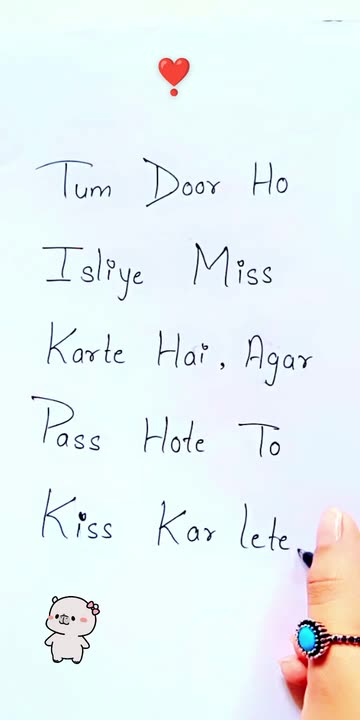 Tum Door Ho
Isliye Miss
Karte Hai, Agar
Pass Hote To
Kiss Kar lete.